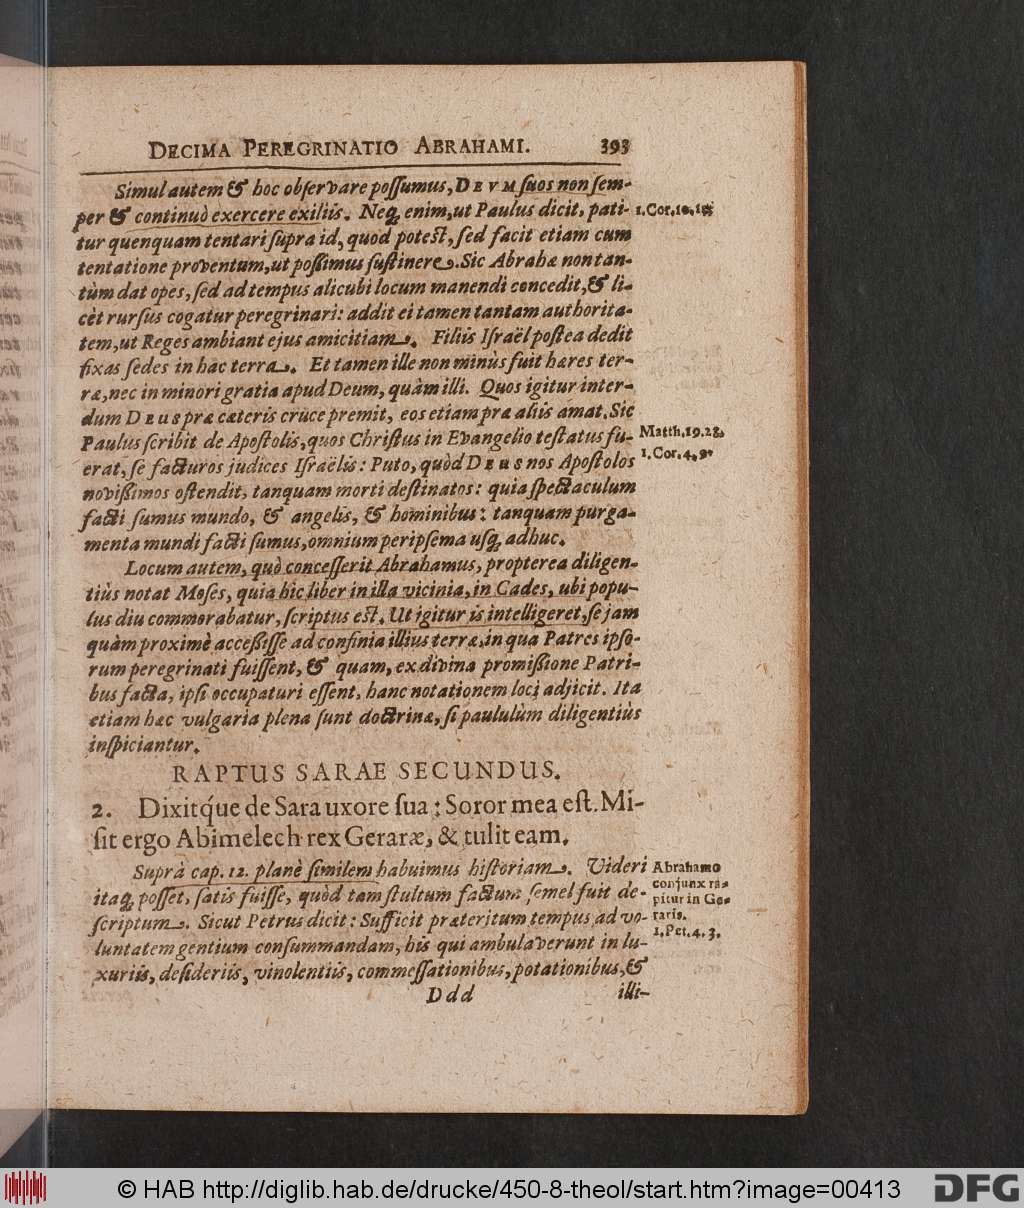 DECIMA PEREGRINATIO ABRAHAMI. 393
Simul autem & hoc obſervare poſſumus, DEVM ſuos non ſem-
per & continuò exercere exiliis. Neq; enim, ut Paulus dicit, pati-
1. Cor. 10, 13;
tur quenquam tentari ſupra id, quod poteſt, ſed facit etiam cum
tentatione proventum, ut poſſimus ſuſtinere. Sic Abrahæ non tan-
tùm dat opes, ſed ad tempus alicubi locum manendi concedit, & li-
cèt rurſus cogatur peregrinari: addit ei tamen tantam authorita-
tem, ut Reges ambiant ejus amicitiam. Filiis Iſraël poſtea dedit
fixas ſedes in hac terra. Et tamen ille non minùs fuit hæres ter-
ræ, nec in minori gratia apud Deum, quàm illi. Quos igitur inter-
dum DEUS præ cæteris cruce premit, eos etiam præ aliis amat. Sic
Paulus ſcribit de Apoſtolis, quos Chriſtus in Evangelio teſtatus fu-
Matth. 19. 28,
erat, ſe facturos judices Iſraëlis: Puto, quòd DEUS nos Apoſtolos
1. Cor. 4, 9,
noviſſimos oſtendit, tanquam morti deſtinatos: quia ſpectaculum
facti ſumus mundo, & angelis, & hominibus: tanquam purga-
menta mundi facti ſumus, omnium peripſema uſq; adhuc.
Locum autem, quò conceſſerit Abrahamus, propterea diligen-
tiùs notat Moſes, quia hic liber in illa vicinia, in Cades, ubi popu-
lus diu commorabatur, ſcriptus eſt. Ut igitur is intelligeret, ſe jam
quàm proximè acceſſiſſe ad confinia illius terræ, in qua Patres ipſo-
rum peregrinati fuiſſent, & quam, ex divina promiſſione Patri-
bus facta, ipſi occupaturi eſſent, hanc notationem loci adjicit. Ita
etiam hæc vulgaria plena ſunt doctrinæ, ſi paululùm diligentiùs
inſpiciantur.
RAPTUS SARAE SECUNDUS.
2. Dixitq́ue de Sara uxore ſua: Soror mea eſt. Mi-
ſit ergo Abimelech rex Geraræ, & tulit eam.
Suprà cap. 12. planè ſimilem habuimus hiſtoriam. Videri
Abrahamo
itaq; poſſet, ſatis fuiſſe, quòd tam ſtultum factum ſemel fuit de-
conjunx ra-
pitur in Ge-
ſcriptum. Sicut Petrus dicit: Sufficit præteritum tempus ad vo-
raris.
1. Pet. 4. 3.
luntatem gentium conſummandam, his qui ambulaverunt in lu-
xuriis, deſideriis, vinolentiis, commeſſationibus, potationibus, &
Ddd illi-
© HAB http://diglib.hab.de/drucke/450-8-theol/start.htm?image=00413
DFG